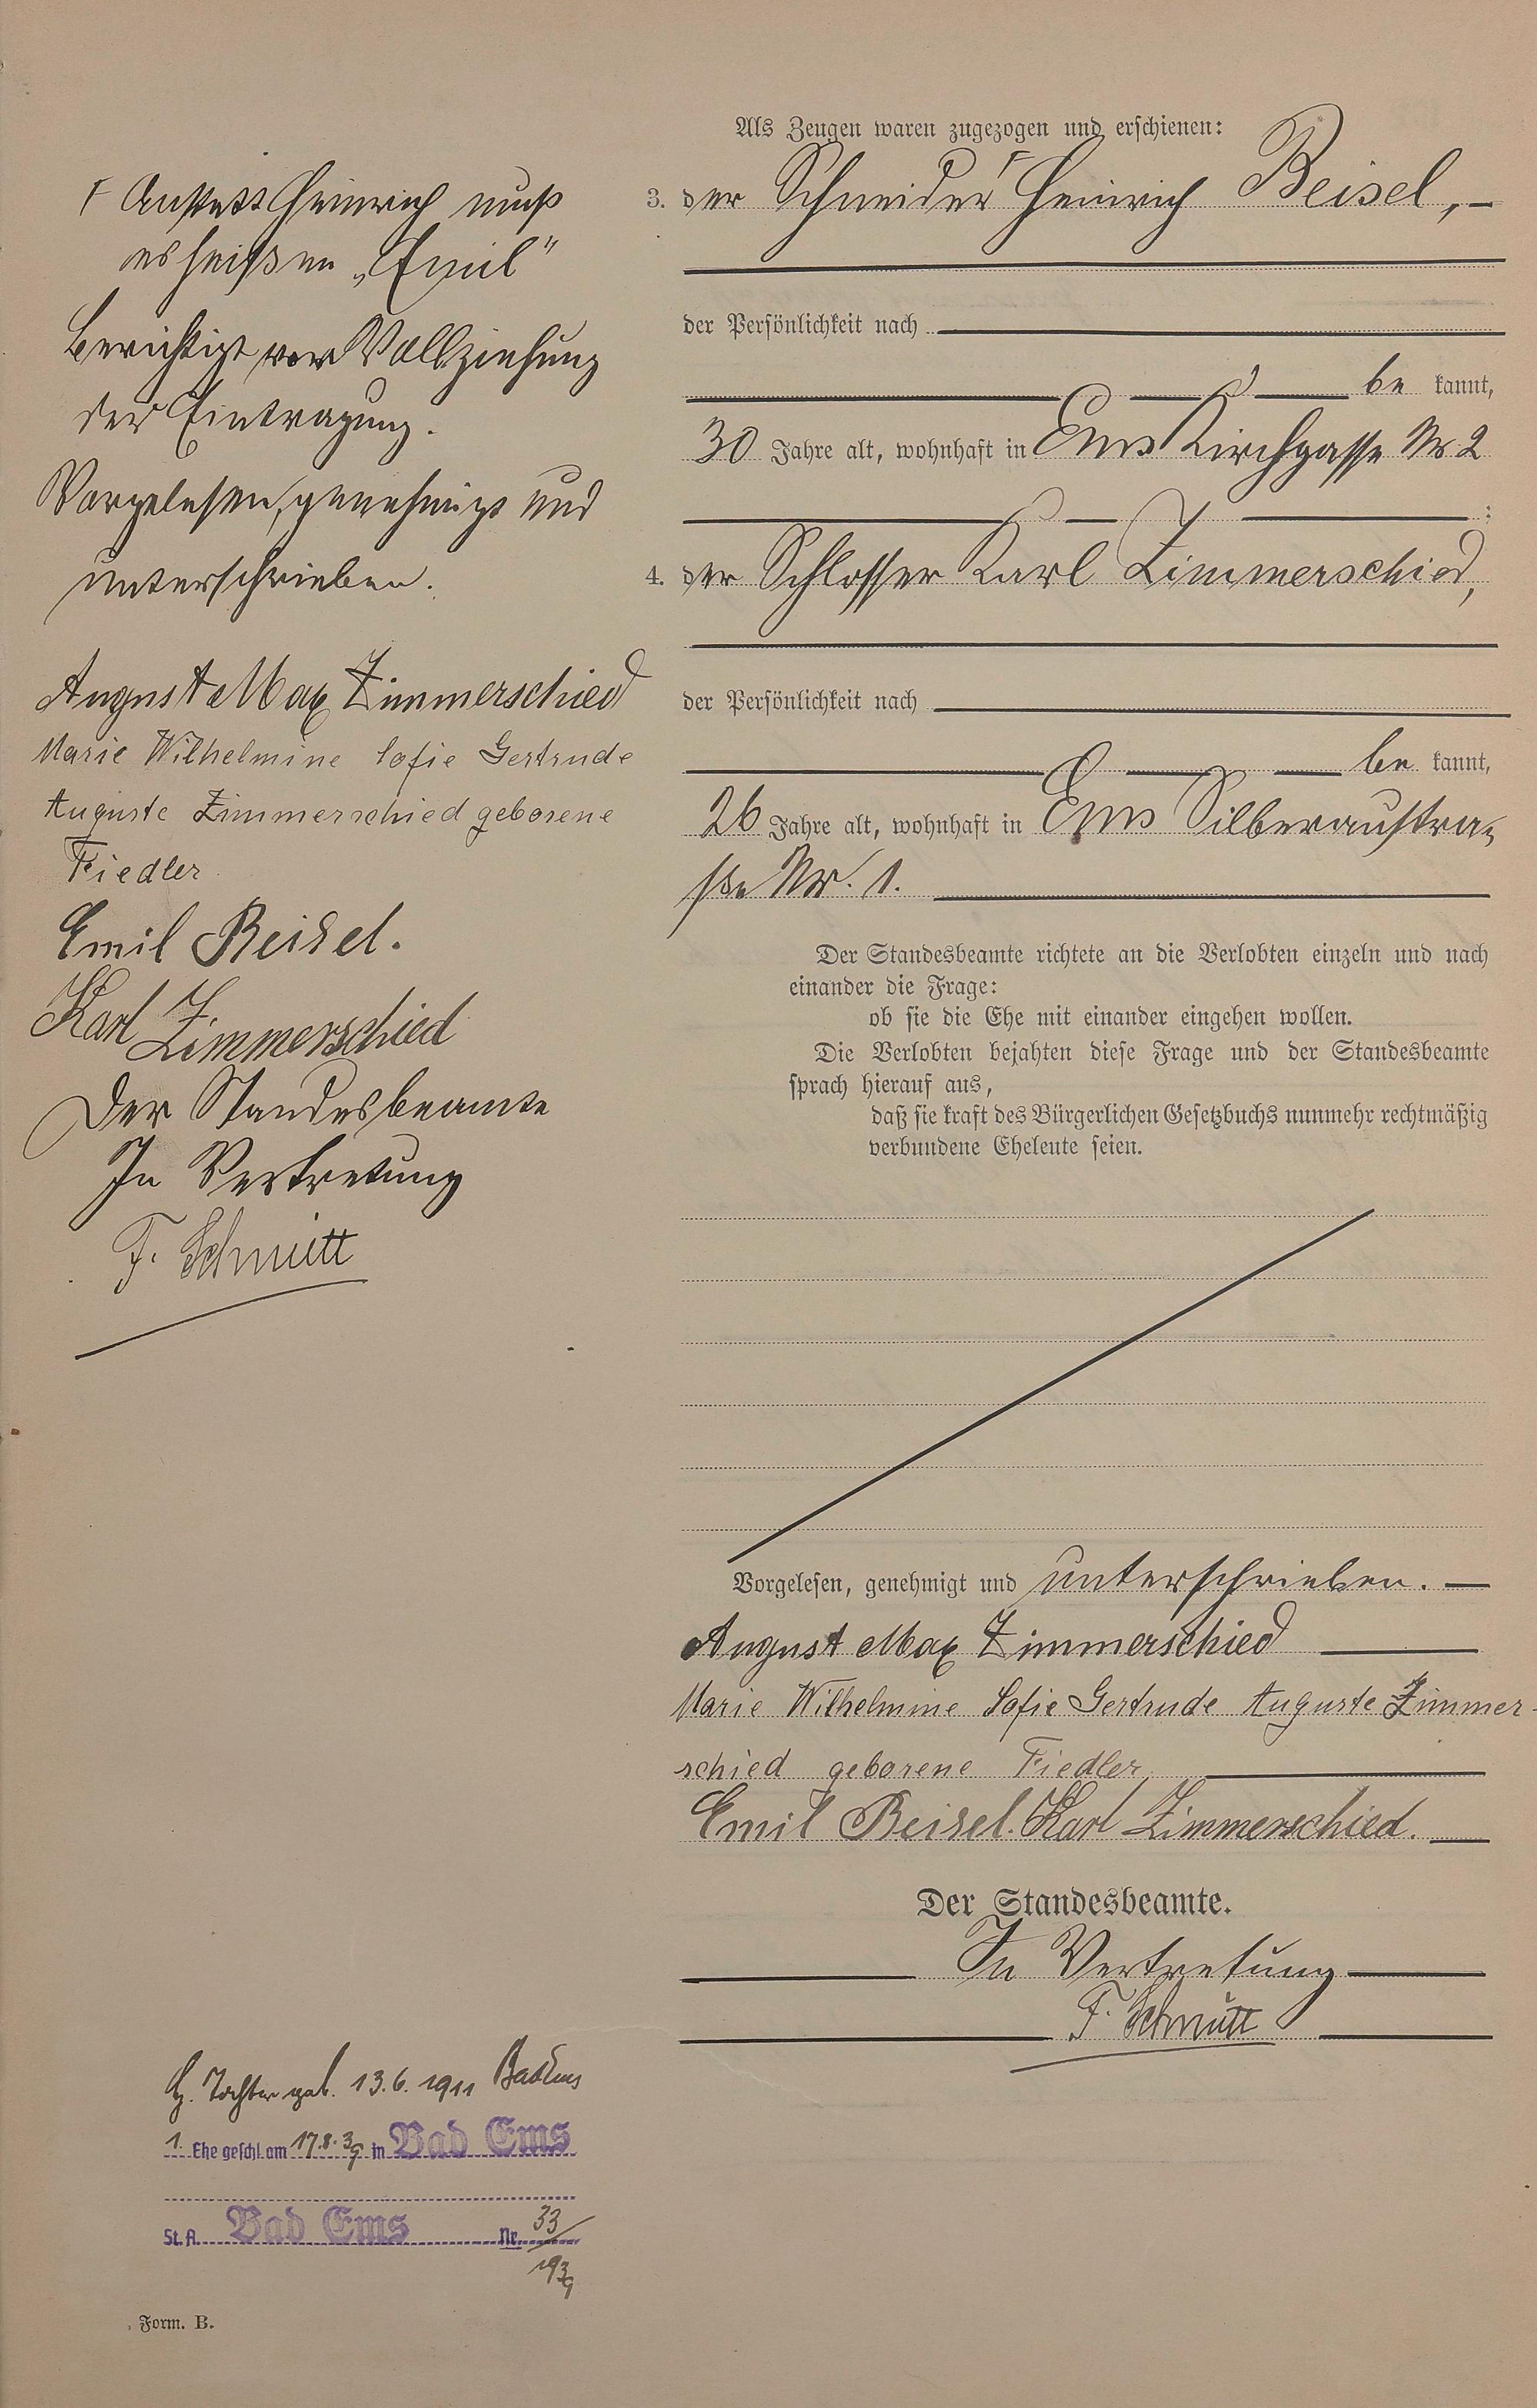 Als Zeugen waren zugezogen und erschienen:
3. der Schneider ⊢ Heinrich Beisel, —
der Persönlichkeit nach
be kannt,
30 Jahre alt, wohnhaft in Ems Kirchgasse Nr. 2
;
4. der Schlosser Karl Zimmerschied,
der Persönlichkeit nach
be kannt,
26 Jahre alt, wohnhaft in Ems Silberaustra-
ße Nr. 1.
Der Standesbeamte richtete an die Verlobten einzeln und nach
einander die Frage:
ob sie die Ehe mit einander eingehen wollen.
Die Verlobten bejahten diese Frage und der Standesbeamte
sprach hierauf aus,
daß sie kraft des Bürgerlichen Gesetzbuchs nunmehr rechtmäßig
verbundene Eheleute seien.
Vorgelesen, genehmigt und unterschrieben. —
August Max Zimmerschied
Marie Wilhelmine Sofie Gertrude Auguste Zimmer-
schied geborene Fiedler
Emil Beisel. Karl Zimmerschied.
Der Standesbeamte.
In Vertretung
F. Schmitt
⊢ Anstatt Heinrich muß
es heißen „Emil"
Berichtigt vor Vollziehung
der Eintragung.
Vorgelesen, genehmigt und
unterschrieben.
August Max Zimmerschied
Marie Wilhelmine Sofie Gertrude
Auguste Zimmerschied geborene
Fiedler
Emil Beisel.
Karl Zimmerschied
Der Standesbeamte
In Vertretung
F. Schmitt
Tochter geb. 13.6.1911 Bad Ems
1. Ehe geschl. am 17.8.39 in Bad Ems
St. A. Bad Ems Nr. 33/1939
Form. B.